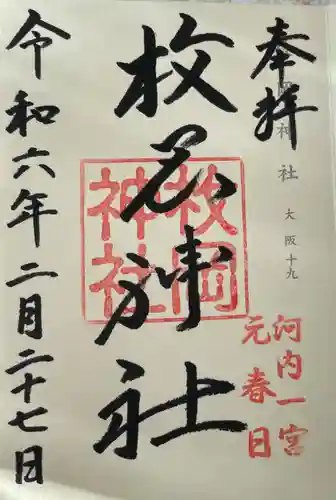 奉拝
岡神社 大阪十九
枚岡神社
枚岡
神社
河内一宮
元春日
令和六年二月二十七日